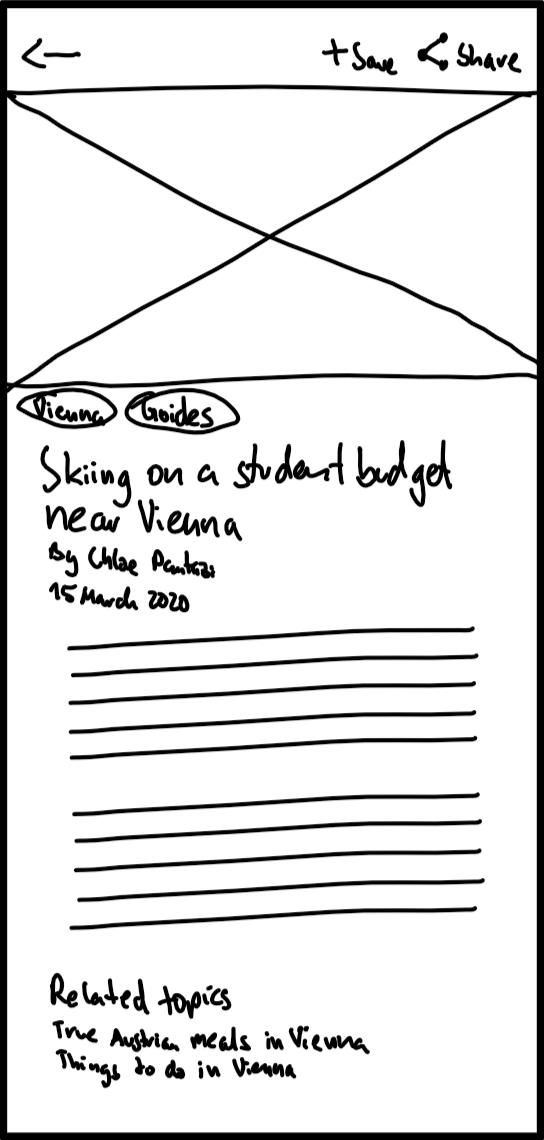 + Save Share
Vienna Guides
Skiing on a student budget
near Vienna
By Chloe Pantazi
15 March 2020
Related topics
True Austrian meals in Vienna
Things to do in Vienna